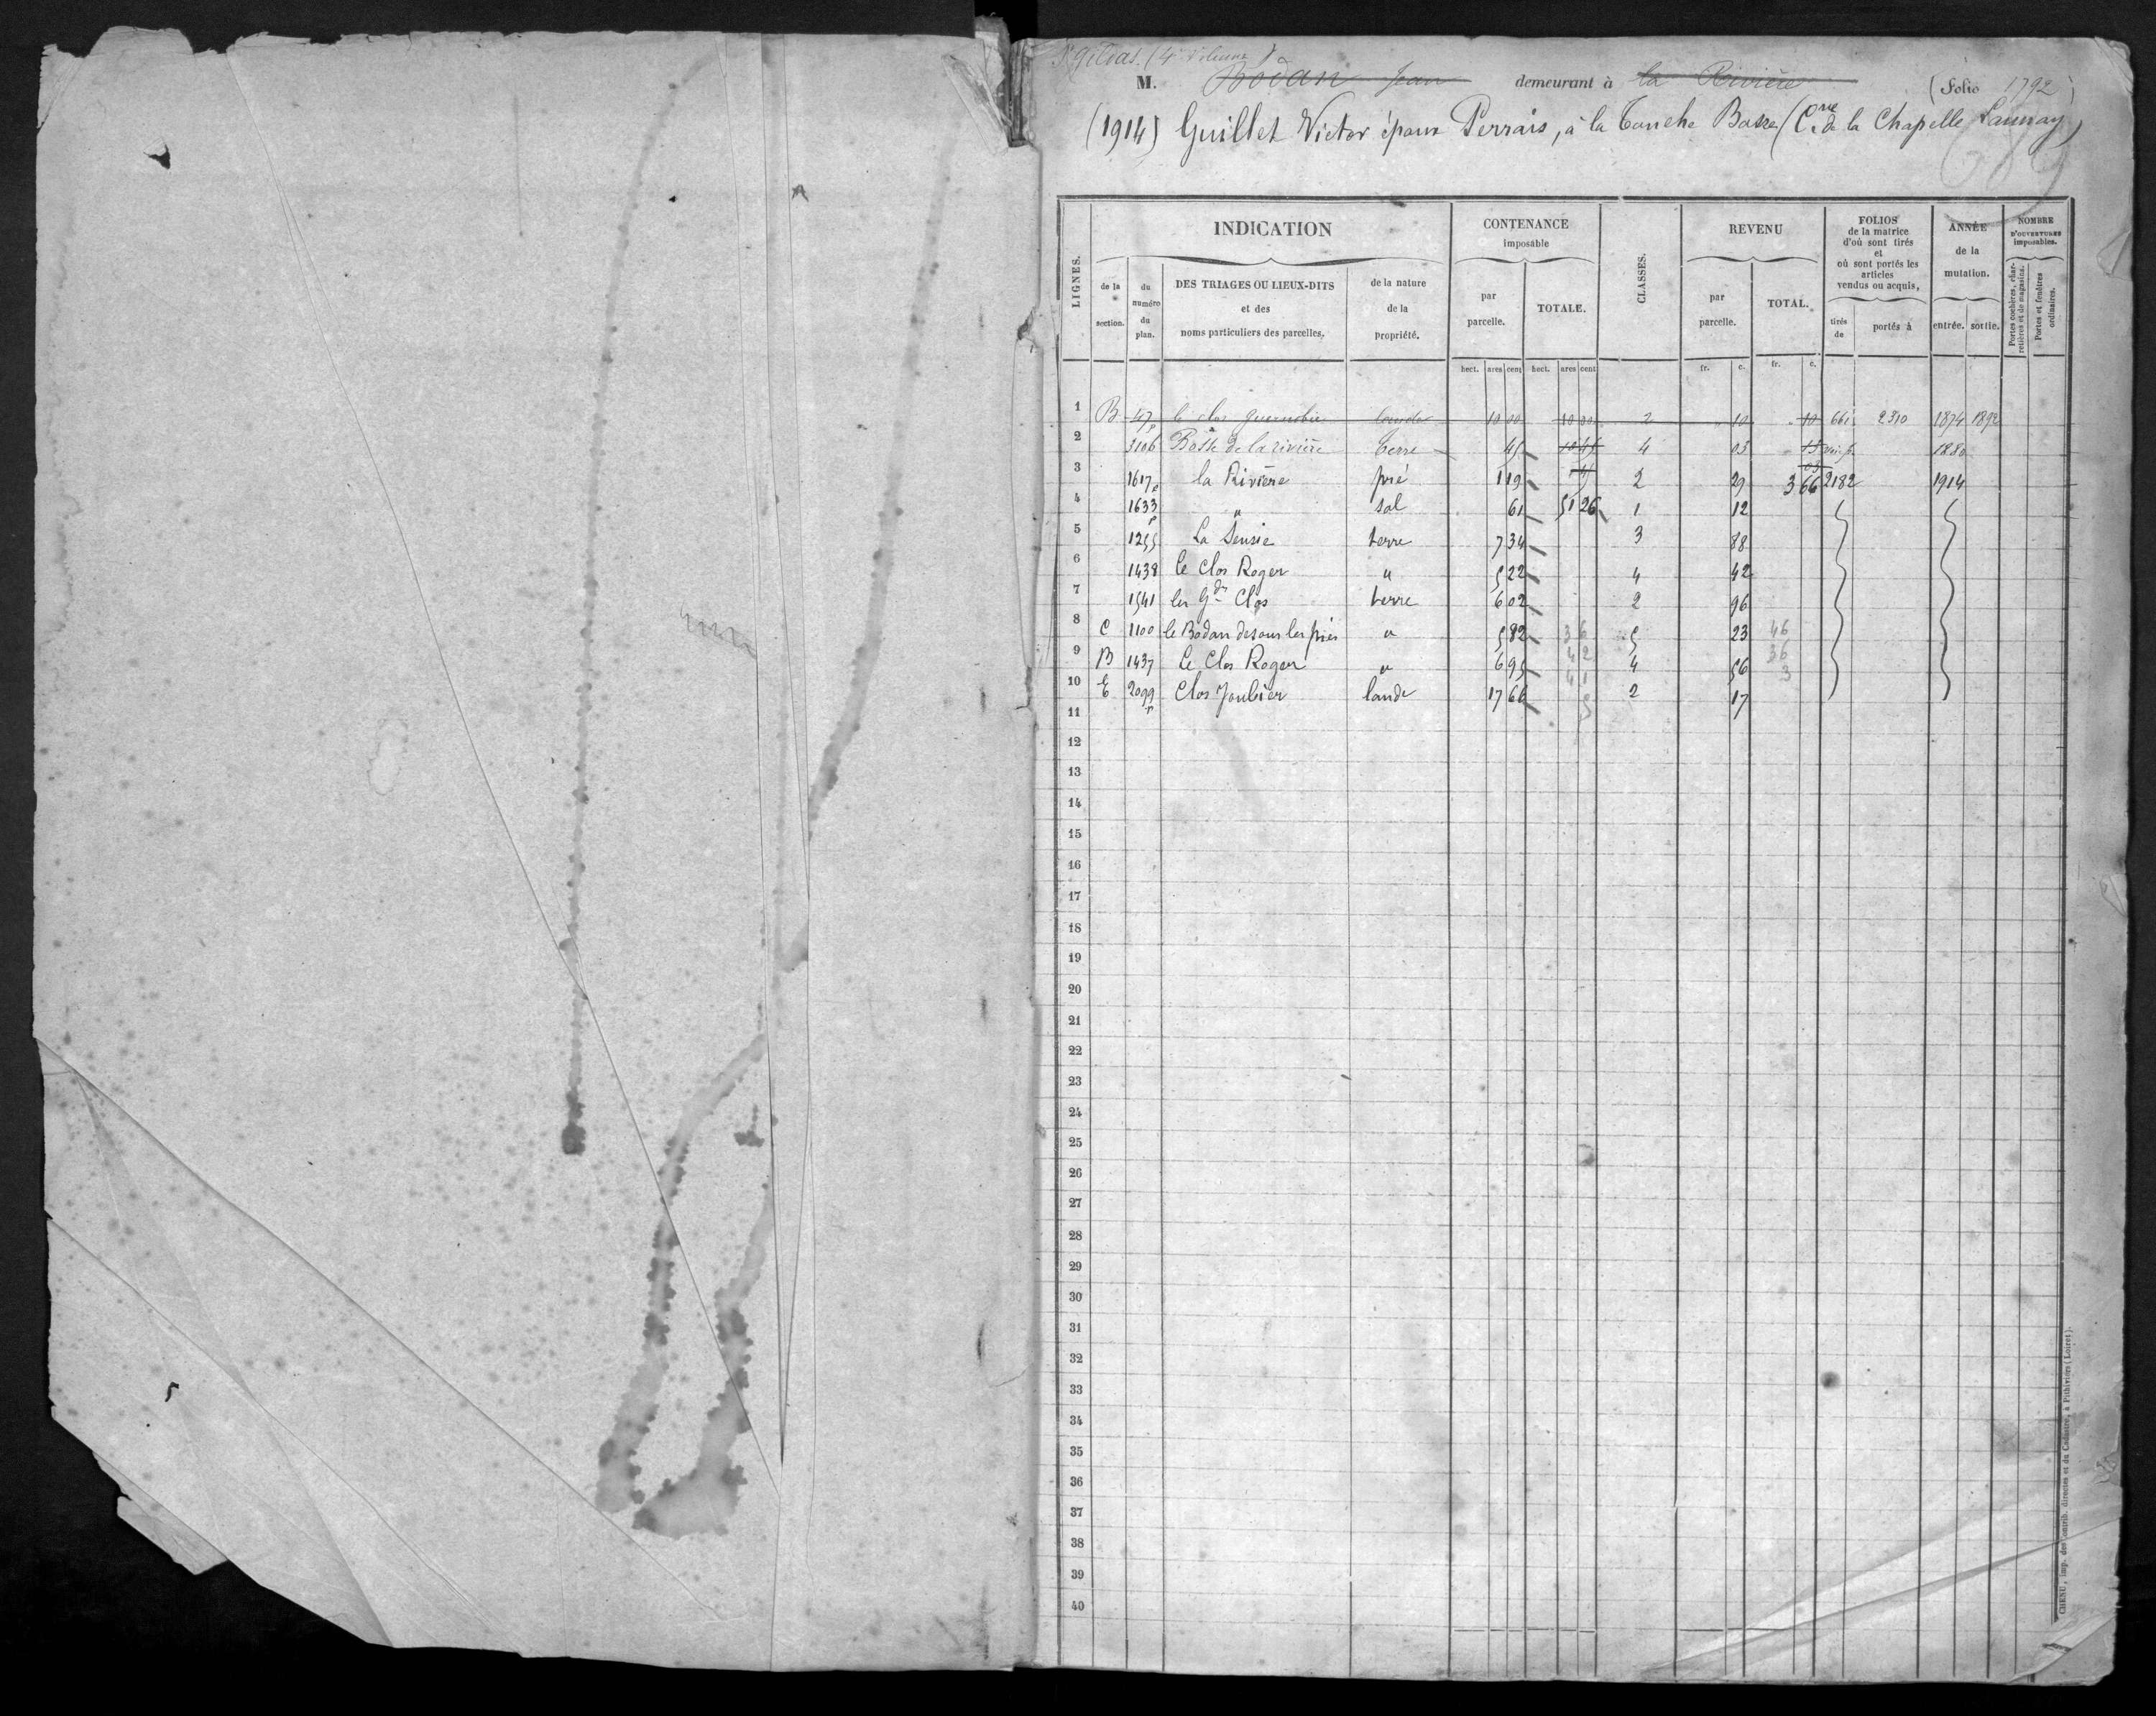 St Gildas. (4e Volume)
M. Bodan Jean demeurant à la Rivière (Folio 1792)
(1914) Guillet Victor époux Perrais, à la Touche Basse (Cne de la Chapelle Launay)
LIGNES. INDICATION CONTENANCE imposable CLASSES. REVENU FOLIOS de la matrice d'où sont tirés et où sont portés les articles vendus ou acquis, ANNÉE de la mutation. NOMBRE D'OUVERTURES imposables.
de la section. du numéro du plan. DES TRIAGES OU LIEUX-DITS et des noms particuliers des parcelles. de la nature de la propriété. par parcelle. TOTALE. par parcelle. TOTAL. tirés de portés à entrée. sortie. Portes cochères, charretières et de magasins. Portes et fenêtres ordinaires.
hect. ares cent hect. ares cent fr. c. fr. c.
1 B 47p le clos lande 10 00 10 00 2 10 10 661 2310 1874 1892
2 3106 Bosse de la rivière terre 45 10 45 4 03 13 1880
3 1617p la Rivière pré 1 19 45 2 29 03 3 66 2182 1914
4 1633p " sol 61 51 26 1 12
5 1255 La Sensie terre 7 34 3 88
6 1438 le Clos Roger " 5 22 4 42
7 1541 les Gds Clos terre 6 02 2 96
8 C 1100 le Bodan desous les prés " 5 82 36 5 23 46
9 B 1437 Le Clos Roger " 6 95 42 4 56 36
10 E 2099p Clos Joubier lande 17 66 41 2 17 3
11 5
12
13
14
15
16
17
18
19
20
21
22
23
24
25
26
27
28
29
30
31
32
33
34
35
36
37
38
39
40
CHENU, imp. des Contrib. directes et du Cadastre, à Pithiviers (Loiret).